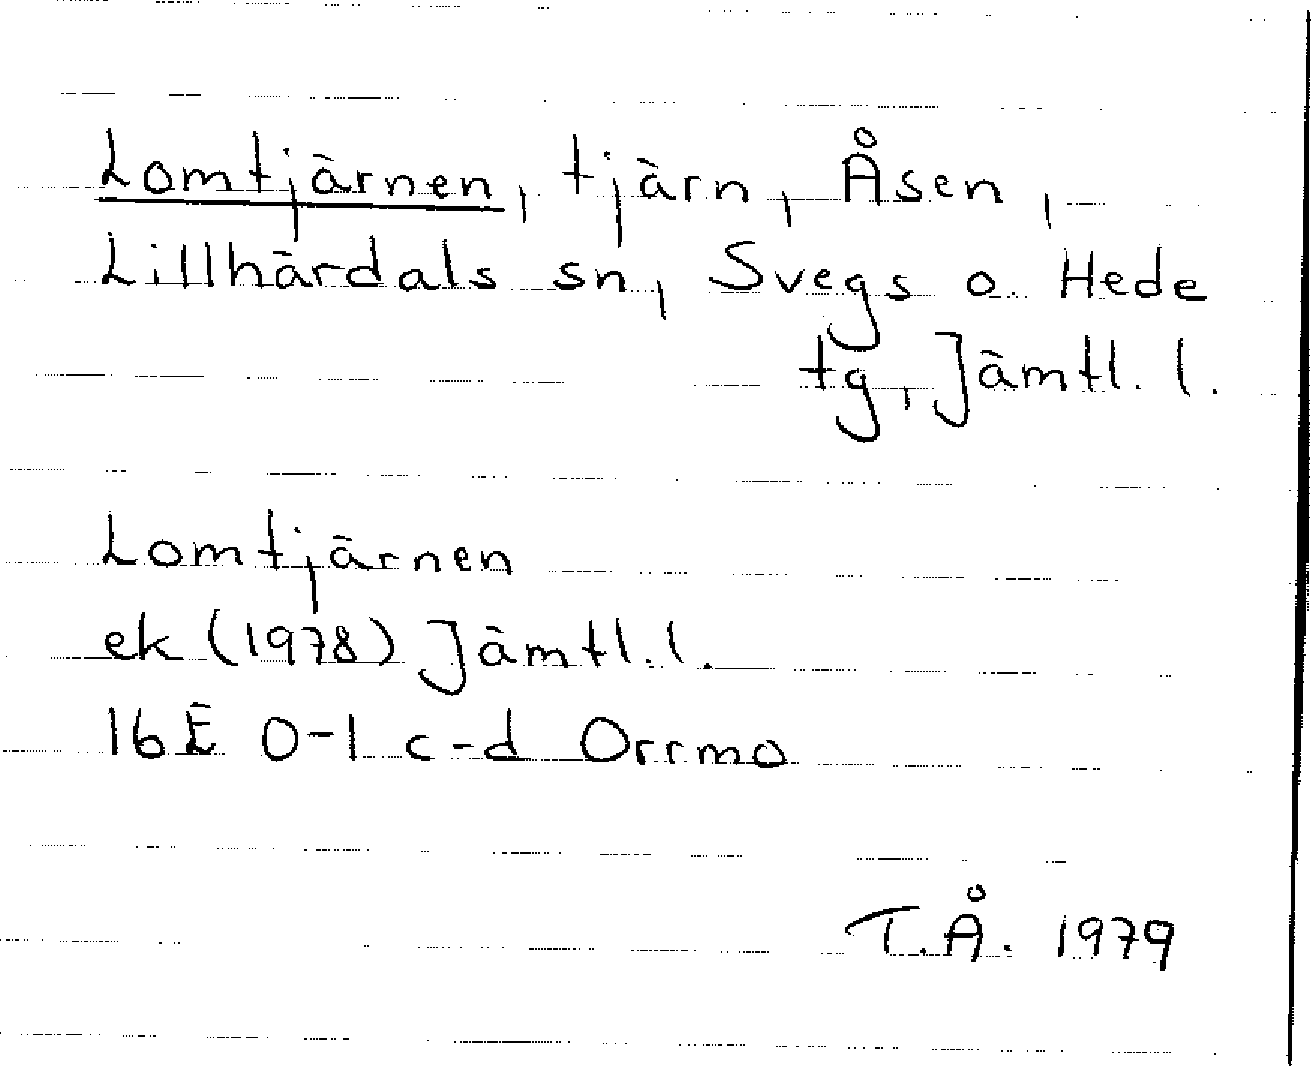 Lomtjärnen, tjärn, Åsen,
Lillhärdals sn, Svegs o. Hede
tg, Jämtl. l.
Lomtjärnen
ek (1978) Jämtl. l.
16E 0-1 c-d Orrmo
T.Å. 1979